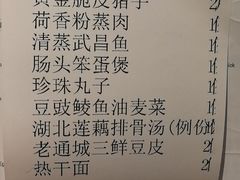 黄金脆皮猪手 2/
荷香粉蒸肉 1/
清蒸武昌鱼 1/
肠头笨蛋煲 1/
珍珠丸子 1/
豆豉鲮鱼油麦菜 1/
湖北莲藕排骨汤(例份 1/
老通城三鲜豆皮 2/
热干面 2/